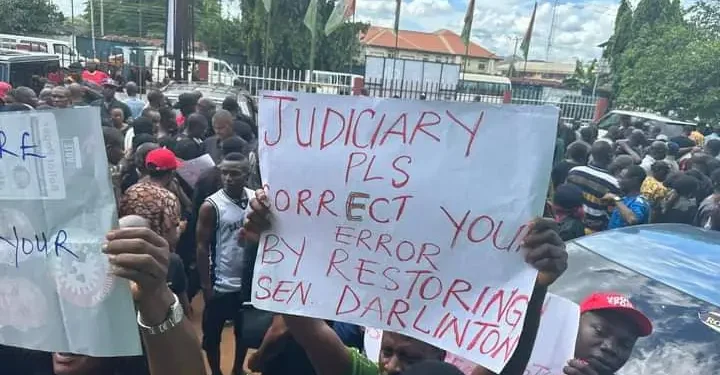 JUDICIARY
PLS
CORRECT YOUR
ERROR
BY RESTORING
SEN. DARLINTON
RE
YOUR